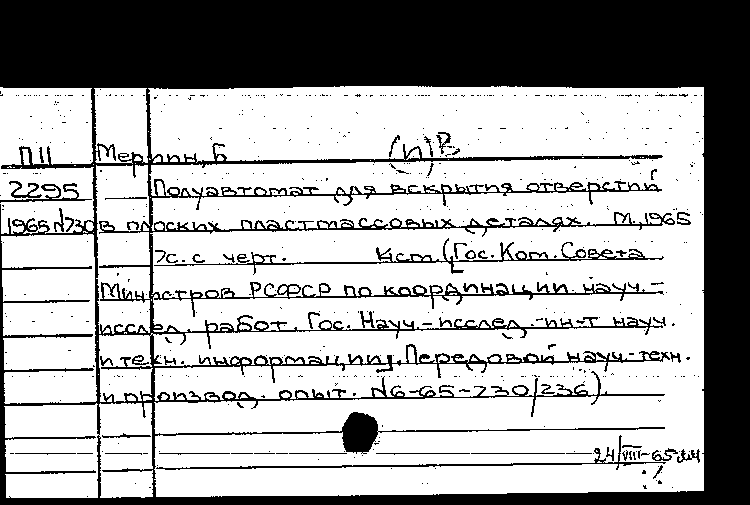 П11 Мерпин, Б (п)В
2295 Полуавтомат для вскрытия отверстий
1965 №730 в плоских пластмассовых деталях. М., 1965
7с. с черт. (Гос. Ком. Совета
Министров РСФСР по координации науч.-
исслед. работ. Гос. Науч.-исслед. ин-т науч.
и техн. информации]. Передовой науч.-техн.
и производ. опыт. №6-65-730/236).
24/VIII-65